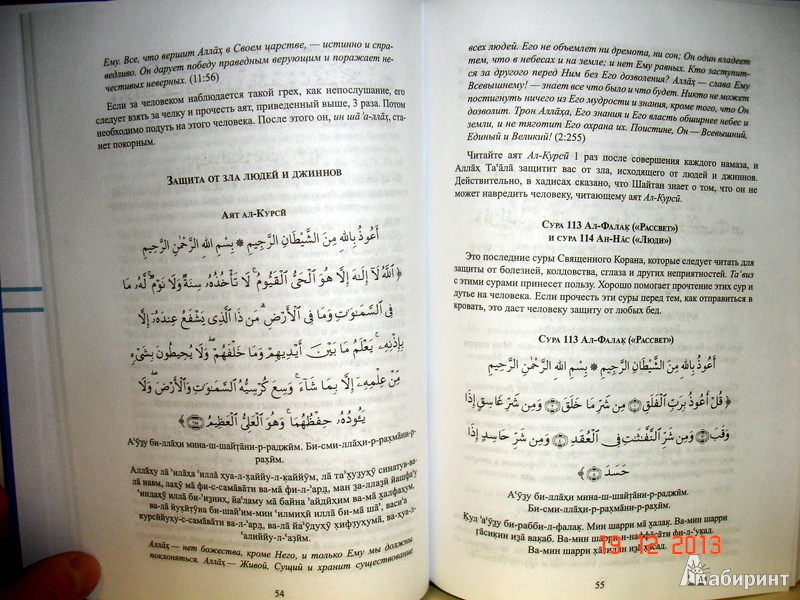 Ему. Все, что вершит Аллāх̣ в Своем царстве, — истинно и спра-
ведливо. Он дарует победу праведным верующим и поражает не-
честивых неверных. (11:56)
Если за человеком наблюдается такой грех, как непослушание, его
следует взять за челку и прочесть аят, приведенный выше, 3 раза. Потом
необходимо подуть на этого человека. После этого он, ин шā’а-ллāх̣, ста-
нет покорным.
Защита от зла людей и джиннов
Аят ал-Курсӣ
أَعُوذُ بِاللهِ مِنَ الشَّيْطَانِ الرَّجِيمِ * بِسْمِ اللهِ الرَّحْمٰنِ الرَّحِيمِ
﴿ اللَّهُ لَا إِلَٰهَ إِلَّا هُوَ الْحَيُّ الْقَيُّومُ ۚ لَا تَأْخُذُهُ سِنَةٌ وَلَا نَوْمٌ ۚ لَّهُ مَا
فِي السَّمَاوَاتِ وَمَا فِي الْأَرْضِ ۗ مَن ذَا الَّذِي يَشْفَعُ عِندَهُ إِلَّا
بِإِذْنِهِ ۚ يَعْلَمُ مَا بَيْنَ أَيْدِيهِمْ وَمَا خَلْفَهُمْ ۖ وَلَا يُحِيطُونَ بِشَيْءٍ
مِّنْ عِلْمِهِ إِلَّا بِمَا شَاءَ ۚ وَسِعَ كُرْسِيُّهُ السَّمَاوَاتِ وَالْأَرْضَ ۖ وَلَا
يَئُودُهُ حِفْظُهُمَا ۚ وَهُوَ الْعَلِيُّ الْعَظِيمُ ﴾
А‘ӯз̱у би-ллāхи мина-ш-шайт̣āни-р-раджӣм. Би-сми-ллāхи-р-рах̣мāни-р-
рах̣ӣм.
Аллāху лā ’илāха ’иллā хуа-л-х̣аййу-л-к̣аййӯм, лā та’х̮уз̱ух̣ӯ синатув-ва-
лā навм, лахӯ мā фи-с-самāвāти ва-мā фи-л-’ард̣, ман з̱а-ллаз̱ӣ йашфа‘у
‘индахӯ иллā би-’из̱них, йа‘ламу мā байна ’айдӣхим ва-мā х̮алфахум,
ва-лā йух̣ӣт̣ӯна би-шай’им-мин ‘илмихӣ иллā би-мā шā’, васи‘а
курсӣйуху-с-самāвāти ва-л-’ард̣, ва-лā йа’ӯдух̣ӯ х̣ифз̣ухумā, ва-хуа-л-
‘алиййу-л-‘аз̣ӣм.
Аллāх̣ — нет божества, кроме Него, и только Ему мы должны
поклоняться. Аллāх̣ — Живой, Сущий и хранит существование
54
всех людей. Его не объемлет ни дремота, ни сон; Он один владеет
тем, что в небесах и на земле; и нет Ему равных. Кто заступит-
ся за другого перед Ним без Его дозволения? Аллāх̣ — слава Ему
Всевышнему! — знает все что было и что будет. Никто не может
постигнуть ничего из Его мудрости и знания, кроме того, что Он
дозволит. Трон Аллāх̣а, Его знания и Его власть обширнее небес и
земли, и не тяготит Его охрана их. Поистине, Он — Всевышний,
Единый и Великий! (2:255)
Читайте аят Ал-Курсӣ 1 раз после совершения каждого намаза, и
Аллāх̣ Та‘āлā защитит вас от зла, исходящего от людей и джиннов.
Действительно, в хадисах сказано, что Шайтан знает о том, что он не
может навредить человеку, читающему аят Ал-Курсӣ.
Сура 113 Ал-Фалак̣ («Рассвет»)
и сура 114 Ан-Нāс («Люди»)
Это последние суры Священного Корана, которые следует читать для
защиты от болезней, колдовства, сглаза и других неприятностей. Та‘виз
с этими сурами принесет пользу. Хорошо помогает прочтение этих сур и
дутье на человека. Если прочесть эти суры перед тем, как отправиться в
кровать, это даст человеку защиту от любых бед.
Сура 113 Ал-Фалак̣ («Рассвет»)
أَعُوذُ بِاللهِ مِنَ الشَّيْطَانِ الرَّجِيمِ * بِسْمِ اللهِ الرَّحْمٰنِ الرَّحِيمِ
﴿ قُلْ أَعُوذُ بِرَبِّ الْفَلَقِ ۝ مِن شَرِّ مَا خَلَقَ ۝ وَمِن شَرِّ غَاسِقٍ إِذَا
وَقَبَ ۝ وَمِن شَرِّ النَّفَّاثَاتِ فِي الْعُقَدِ ۝ وَمِن شَرِّ حَاسِدٍ إِذَا
حَسَدَ ۝ ﴾
А‘ӯз̱у би-ллāхи мина-ш-шайт̣āни-р-раджӣм.
Би-сми-ллāхи-р-рах̣мāни-р-рах̣ӣм.
К̣ул ’а‘ӯз̱у би-рабби-л-фалак̣. Мин шарри мā х̮алак̣. Ва-мин шарри
г̣āсик̣ин из̱ā вак̣аб. Ва-мин шарри-н-наффāс̱āти фи-л-‘ук̣ад.
Ва-мин шарри х̣āсидин из̱ā х̣асад.
55
19 12 2013
Лабиринт